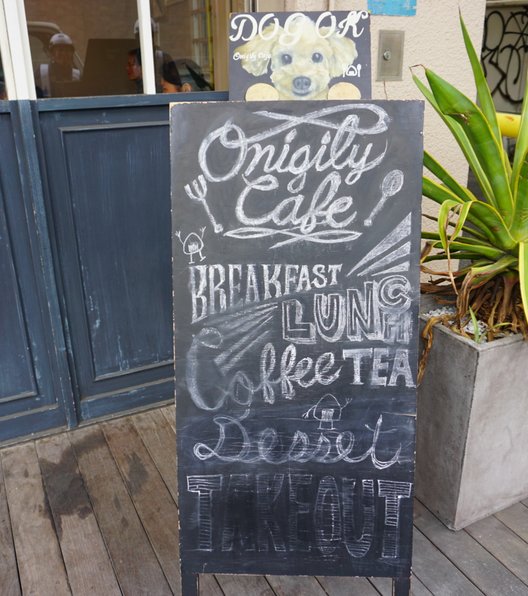 DOG OK
Onigily Cafe
Onigily
Cafe
BREAKFAST
LUNCH
Coffee TEA
Desset
TAKEOUT